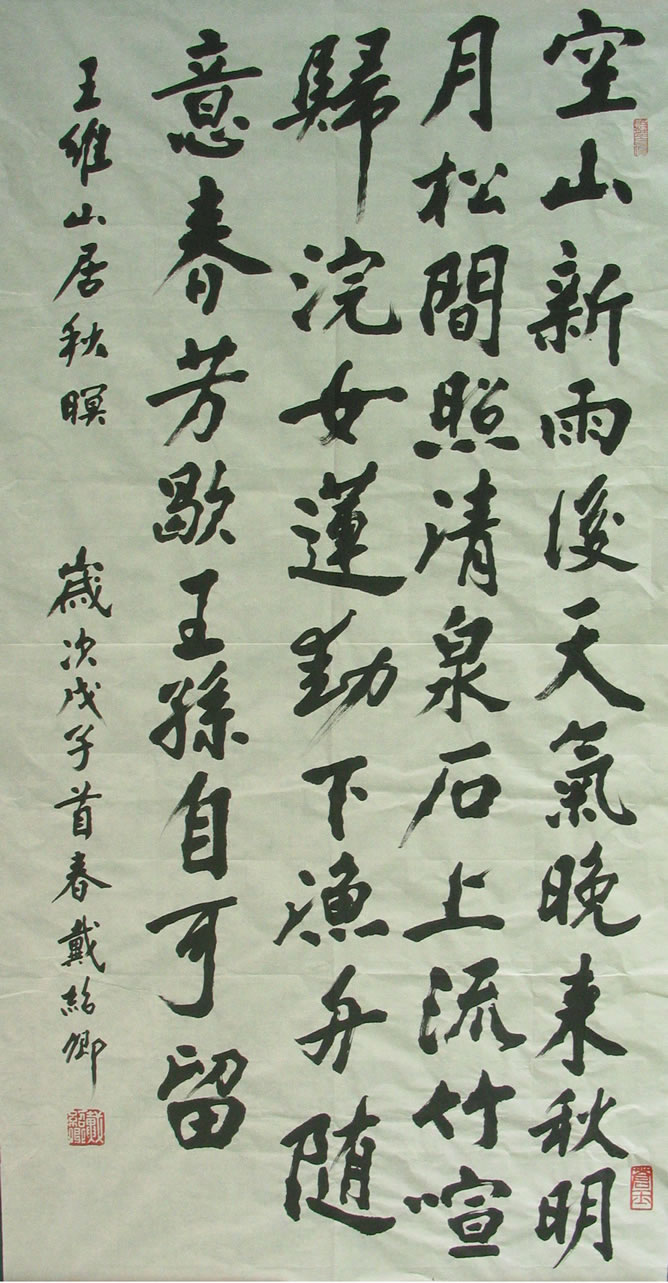 空山新雨後天氣晚来秋明
月松間照清泉石上流竹喧
歸浣女蓮動下漁舟随
意春芳歇王孫自可留
王維山居秋暝
歲次戊子首春戴紹卿
戴紹卿